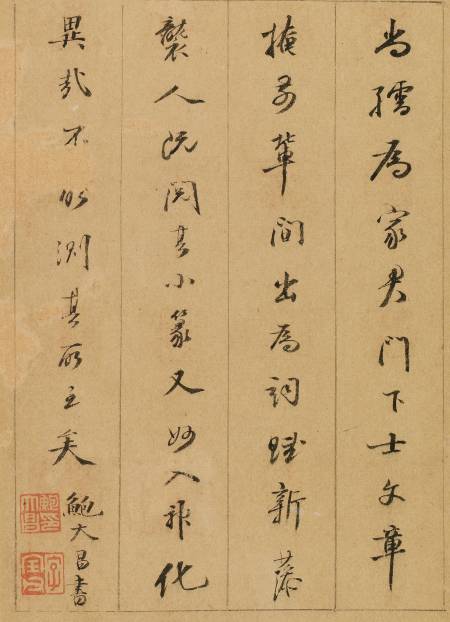 尚孺為家君門下士文章
掩前輩間出為詞賦新藻
襲人既閱其小篆又妙入神化
異哉不能測其所至矣
鮑大昌書